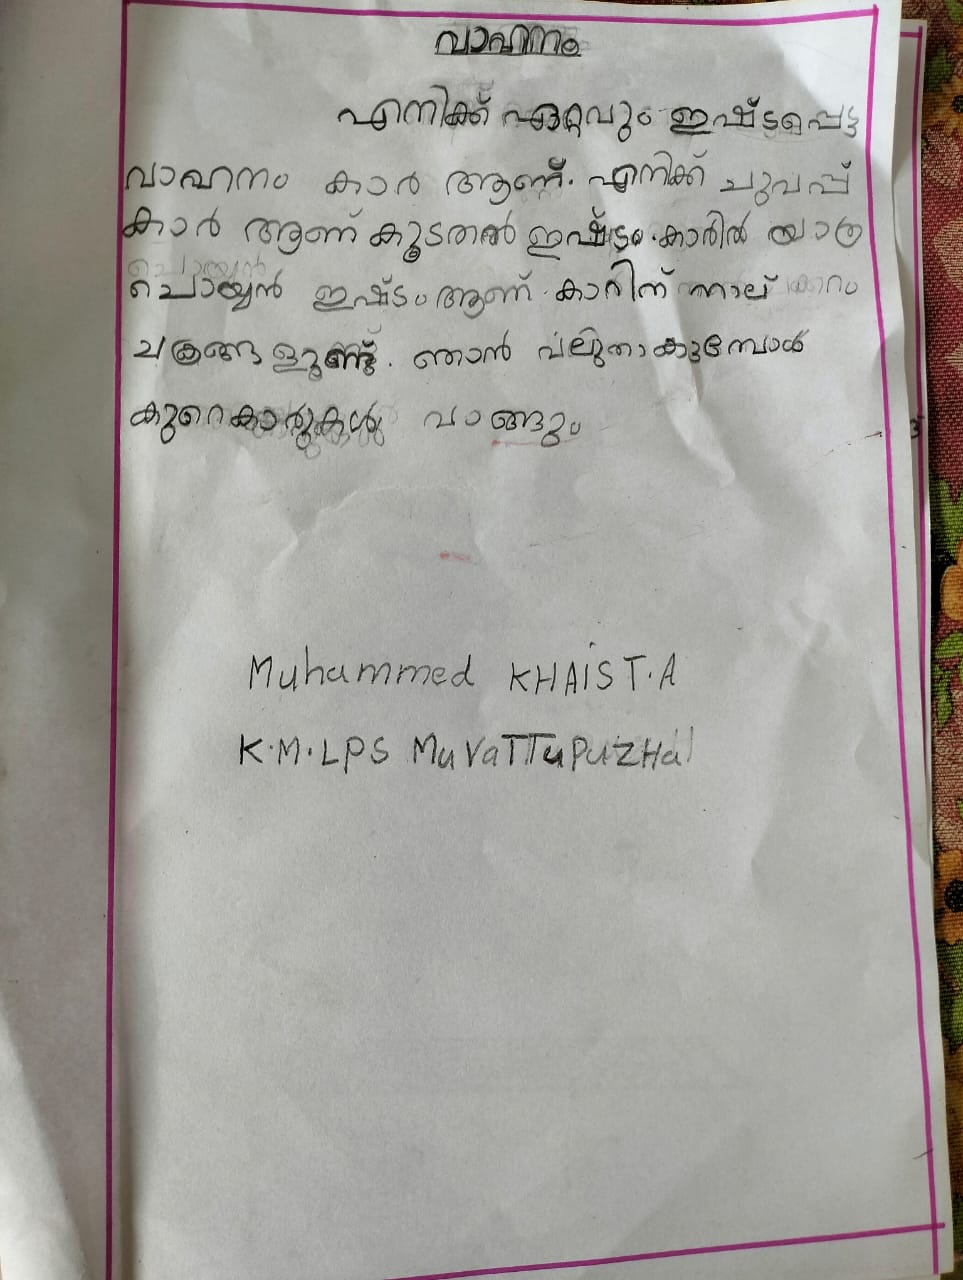 വാഹനം
എനിക്ക് ഏറ്റവും ഇഷ്ടപ്പെട്ട
വാഹനം കാർ ആണ്. എനിക്ക് ചുവപ്പ്
കാർ ആണ് കൂടതൽ ഇഷ്ടം. കാരിൽ യാത്ര
ചെയ്യൻ ഇഷ്ടം ആണ് കാറിന് നാല്
ചക്രങ്ങളുണ്ട്. ഞാൻ വലുതാകുമ്പോൾ
കുറെ കാറുകൾ വാങ്ങും
Muhammed KHAIS T.A
K.M.LPS MuVaTTuPuZHa